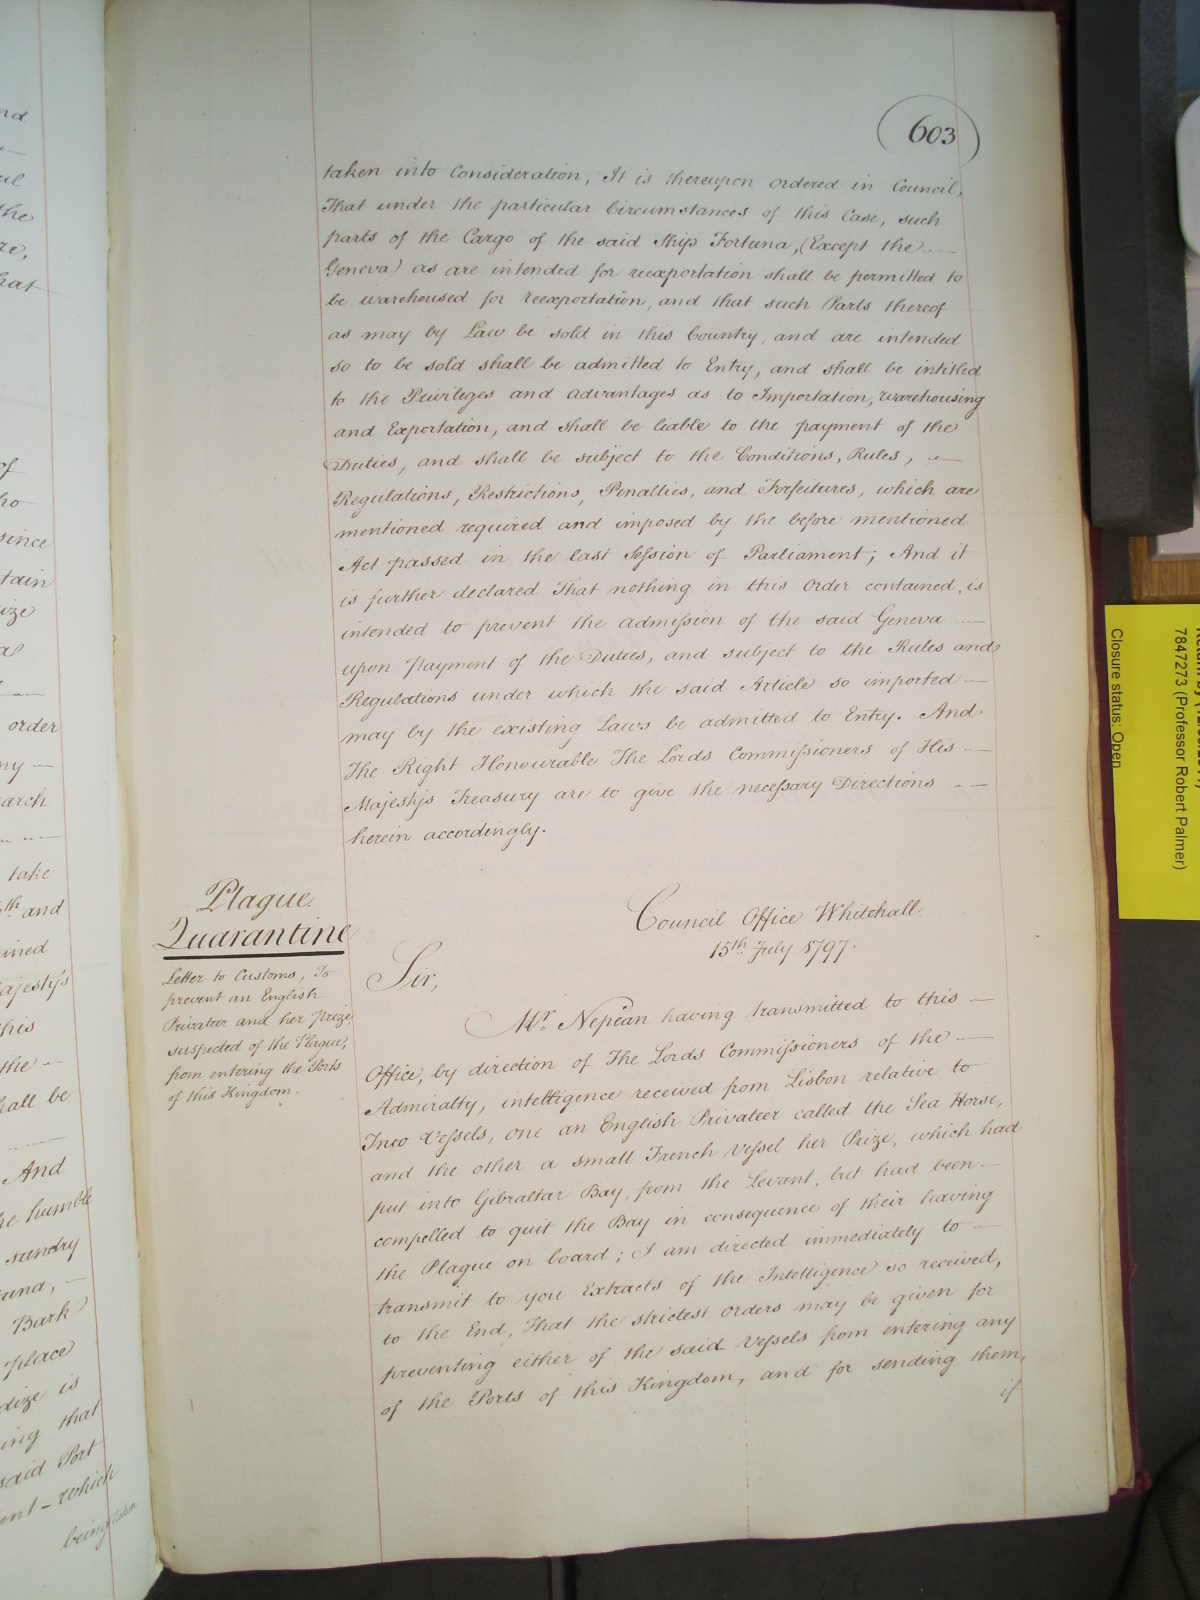 603
taken into Consideration, It is thereupon ordered in Council,
That under the particular Circumstances of this Case, such
parts of the Cargo of the said Ship Fortuna, (Except the
Geneva) as are intended for reexportation shall be permitted to
be warehoused for reexportation, and that such Parts thereof
as may by Law be sold in this Country, and are intended
so to be sold shall be admitted to Entry, and shall be intitled
to the Privileges and advantages as to Importation, warehousing
and Exportation, and shall be liable to the payment of the
Duties, and shall be subject to the Conditions, Rules,
Regulations, Restrictions, Penalties, and Forfeitures, which are
mentioned required and imposed by the before mentioned
Act passed in the last Session of Parliament; And it
is further declared That nothing in this Order contained, is
intended to prevent the admission of the said Geneva
upon Payment of the Duties, and subject to the Rules and
Regulations under which the said Article so imported
may by the existing Laws be admitted to Entry. And
The Right Honourable The Lords Commissioners of His
Majesty's Treasury are to give the necessary Directions
herein accordingly.
Plague.
Quarantine
Letter to Customs, To
prevent an English
Privateer and her Prize
suspected of the Plague,
from entering the Ports
of this Kingdom.
Council Office Whitehall
15th July 1797.
Sir,
Mr. Nepean having transmitted to this
Office, by direction of The Lords Commissioners of the
Admiralty, intelligence received from Lisbon relative to
Two Vessels, one an English Privateer called the Sea Horse,
and the other a small French Vessel her Prize, which had
put into Gibraltar Bay, from the Levant, but had been
compelled to quit the Bay in consequence of their having
the Plague on board; I am directed immediately to
transmit to you Extracts of the Intelligence so received,
to the End, That the strictest orders may be given for
preventing either of the said Vessels from entering any
of the Ports of this Kingdom, and for sending them,
if
7847273 (Professor Robert Palmer)
Closure status: Open
the
hat
of
since
tain
order
arch
take
th and
ajesty's
this
the
hall be
And
he humble
sundry
Bark
place
dize is
ing that
said Port
ent - which
being taken